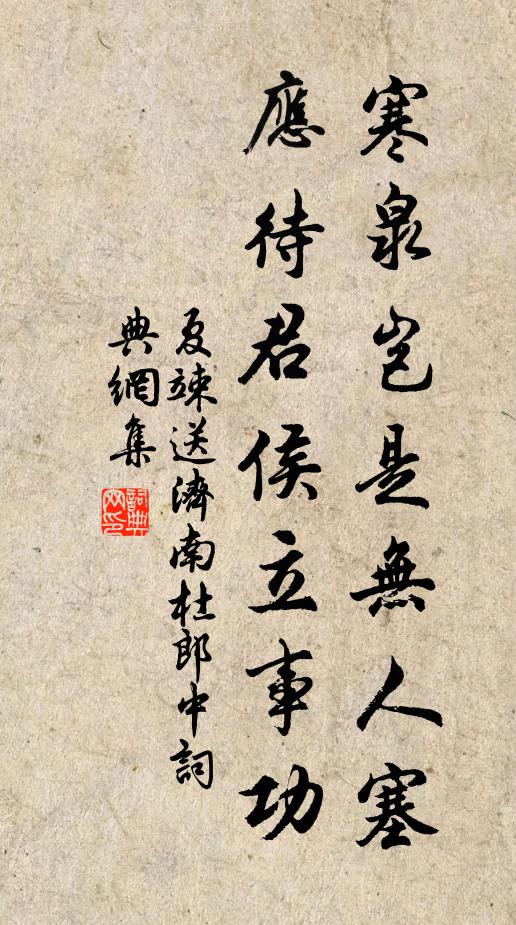 寒泉豈是無人塞
應待君侯立事功
夏竦送濟南杜郎中詞
典網集
詞典網印